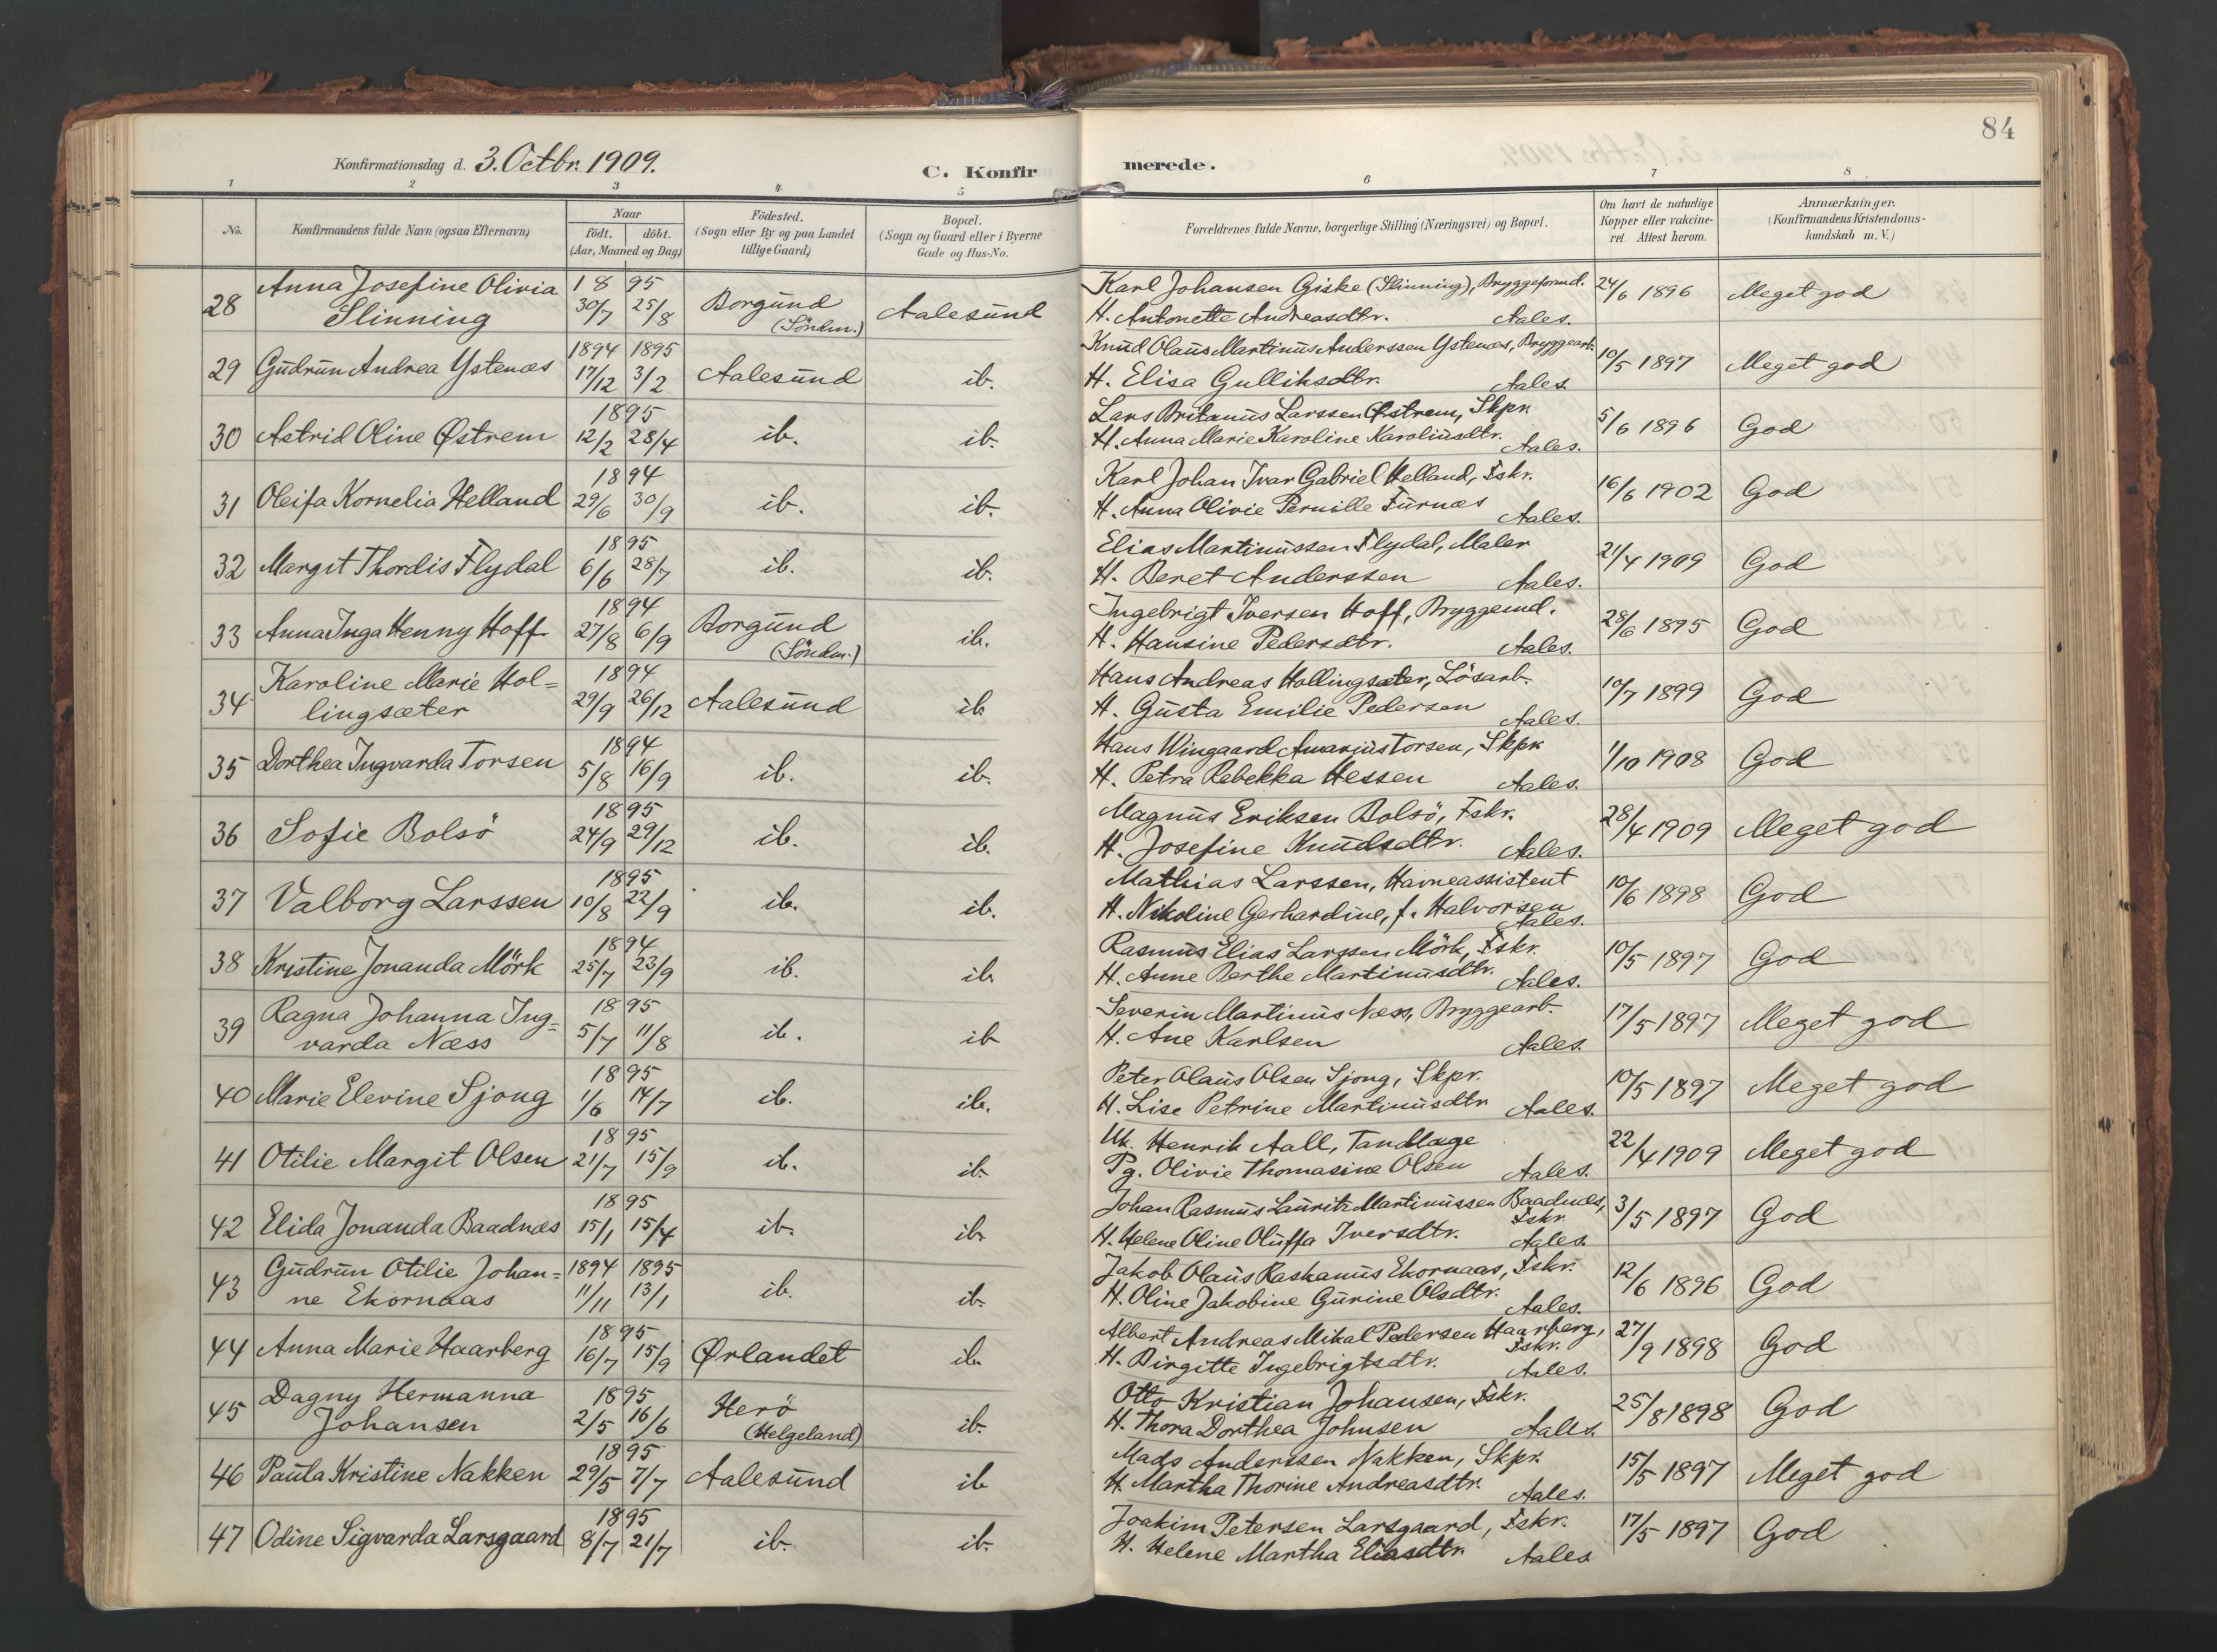 84
Konfirmationsdag d. 3. Octbr. 1909.
C. Konfirmerede.
1 2 3 4 5 6 7 8
No.
Konfirmandens fulde Navn (ogsaa Efternavn)
Naar
født. døbt.
(Aar, Maaned og Dag)
Födested.
(Sogn eller By og paa Landet
tillige Gaard)
Bopæl.
(Sogn og Gaard eller i Byerne
Gade og Hus-No.
Forældrenes fulde Navne, borgerlige Stilling (Næringsvei) og Bopæl.
Om havt de naturlige
Kopper eller vakcine-
ret. Attest herom.
Anmærkninger.
(Konfirmandens Kristendoms-
kundskab m. V.)
28 Anna Josefine Olivia Slinning 1895 30/7 25/8 Borgund (Söndm.) Aalesund
Karl Johansen Giske (Slinning), Bryggeformd.
H. Antonette Andreasdtr. Aales.
24/6 1896 Meget god
29 Gudrun Andrea Ystenæs 1894 17/12 1895 3/2 Aalesund ib.
Knud Olaus Martinus Anderssen Ystenæs, Bryggearb.
H. Elisa Gulliksdtr. Aales.
10/5 1897 Meget god
30 Astrid Oline Østrem 1895 12/2 28/4 ib. ib.
Lars Britanus Larssen Østrem, Skpr.
H. Anna Marie Karoline Karoliusdtr. Aales.
5/6 1896 God
31 Oleifa Kornelia Helland 1894 29/6 30/9 ib. ib.
Karl Johan Ivar Gabriel Helland, Fskr.
H. Anna Olivie Pernille Furnæs Aales.
16/6 1902 God
32 Margit Thordis Flydal 1895 6/6 28/7 ib. ib.
Elias Martinussen Flydal, Maler
H. Beret Anderssen Aales.
21/4 1909 God
33 Anna Inga Henny Hoff 1894 27/8 6/9 Borgund (Söndm.) ib.
Ingebrigt Iversen Hoff, Bryggemd.
H. Hansine Pedersdtr. Aales.
28/6 1895 God
34 Karoline Marie Hol=
lingsæter 1894 29/9 26/12 Aalesund ib.
Hans Andreas Hollingsæter, Lösarb.
H. Gusta Emilie Pedersen Aales.
10/7 1899 God
35 Dorthea Ingvarda Torsen 1894 5/8 16/9 ib. ib.
Hans Wingaard Amarius Torsen, Skpr.
H. Petra Rebekka Hessen Aales.
1/10 1908 God
36 Sofie Bolsö 1895 24/9 29/12 ib. ib.
Magnus Eriksen Bolsö, Fskr.
H. Josefine Knudsdtr. Aales.
28/4 1909 Meget god
37 Valborg Larssen 1895 10/8 22/9 ib. ib.
Mathias Larssen, Havneassistent
H. Nikoline Gerhardine, f. Halvorsen Aales.
10/6 1898 God
38 Kristine Jonanda Mörk 1894 25/7 23/9 ib. ib.
Rasmus Elias Larssen Mörk, Fskr.
H. Anne Berthe Martinusdtr. Aales.
10/5 1897 God
39 Ragna Johanna Ing=
varda Næss 1895 5/7 11/8 ib. ib
Severin Martinus Næss, Bryggearb.
H. Ane Karlsen Aales.
17/5 1897 Meget god
40 Marie Elevine Sjong 1895 1/6 14/7 ib. ib.
Peter Olaus Olsen Sjong, Skpr.
H. Lise Petrine Martinusdtr Aales.
10/5 1897 Meget god
41 Otilie Margit Olsen 1895 21/7 15/9 ib. ib.
Uk. Henrik Aall, Tandlæge
Pg. Olivie Thomasine Olsen Aales.
22/4 1909 Meget god
42 Elida Jonanda Baadnæs 1895 15/1 15/4 ib. ib.
Johan Rasmus Lauritz Martinussen Baadnæs, Fskr.
H. Helene Oline Oluffa Iversdtr. Aales.
3/5 1897 God
43 Gudrun Otilie Johan=
ne Ekornaas 1894 11/11 1895 13/1 ib. ib.
Jakob Olaus Raskanus Ekornaas, Fskr.
H. Oline Jakobine Gurine Olsdtr. Aales.
12/6 1896 God
44 Anna Marie Haarberg 1895 16/7 15/9 Ørlandet ib.
Albert Andreas Mikal Pedersen Haarberg, Fskr.
H. Birgitte Ingebrigtsdtr. Aales.
27/9 1898 God
45 Dagny Hermanna
Johansen 1895 2/5 16/6 Herö (Helgeland) ib.
Otto Kristian Johansen, Fskr.
H. Thora Dorthea Johnsen Aales.
25/8 1898 God
46 Paula Kristine Nakken 1895 29/5 7/7 Aalesund ib
Mads Anderssen Nakken, Skpr.
H. Martha Thorine Andreasdtr. Aales.
15/5 1897 Meget god
47 Odine Sigvarda Larsgaard 1895 8/7 21/7 ib. ib.
Joakim Petersen Larsgaard, Fskr.
H. Helene Martha Eliasdtr. Aales
17/5 1897 God